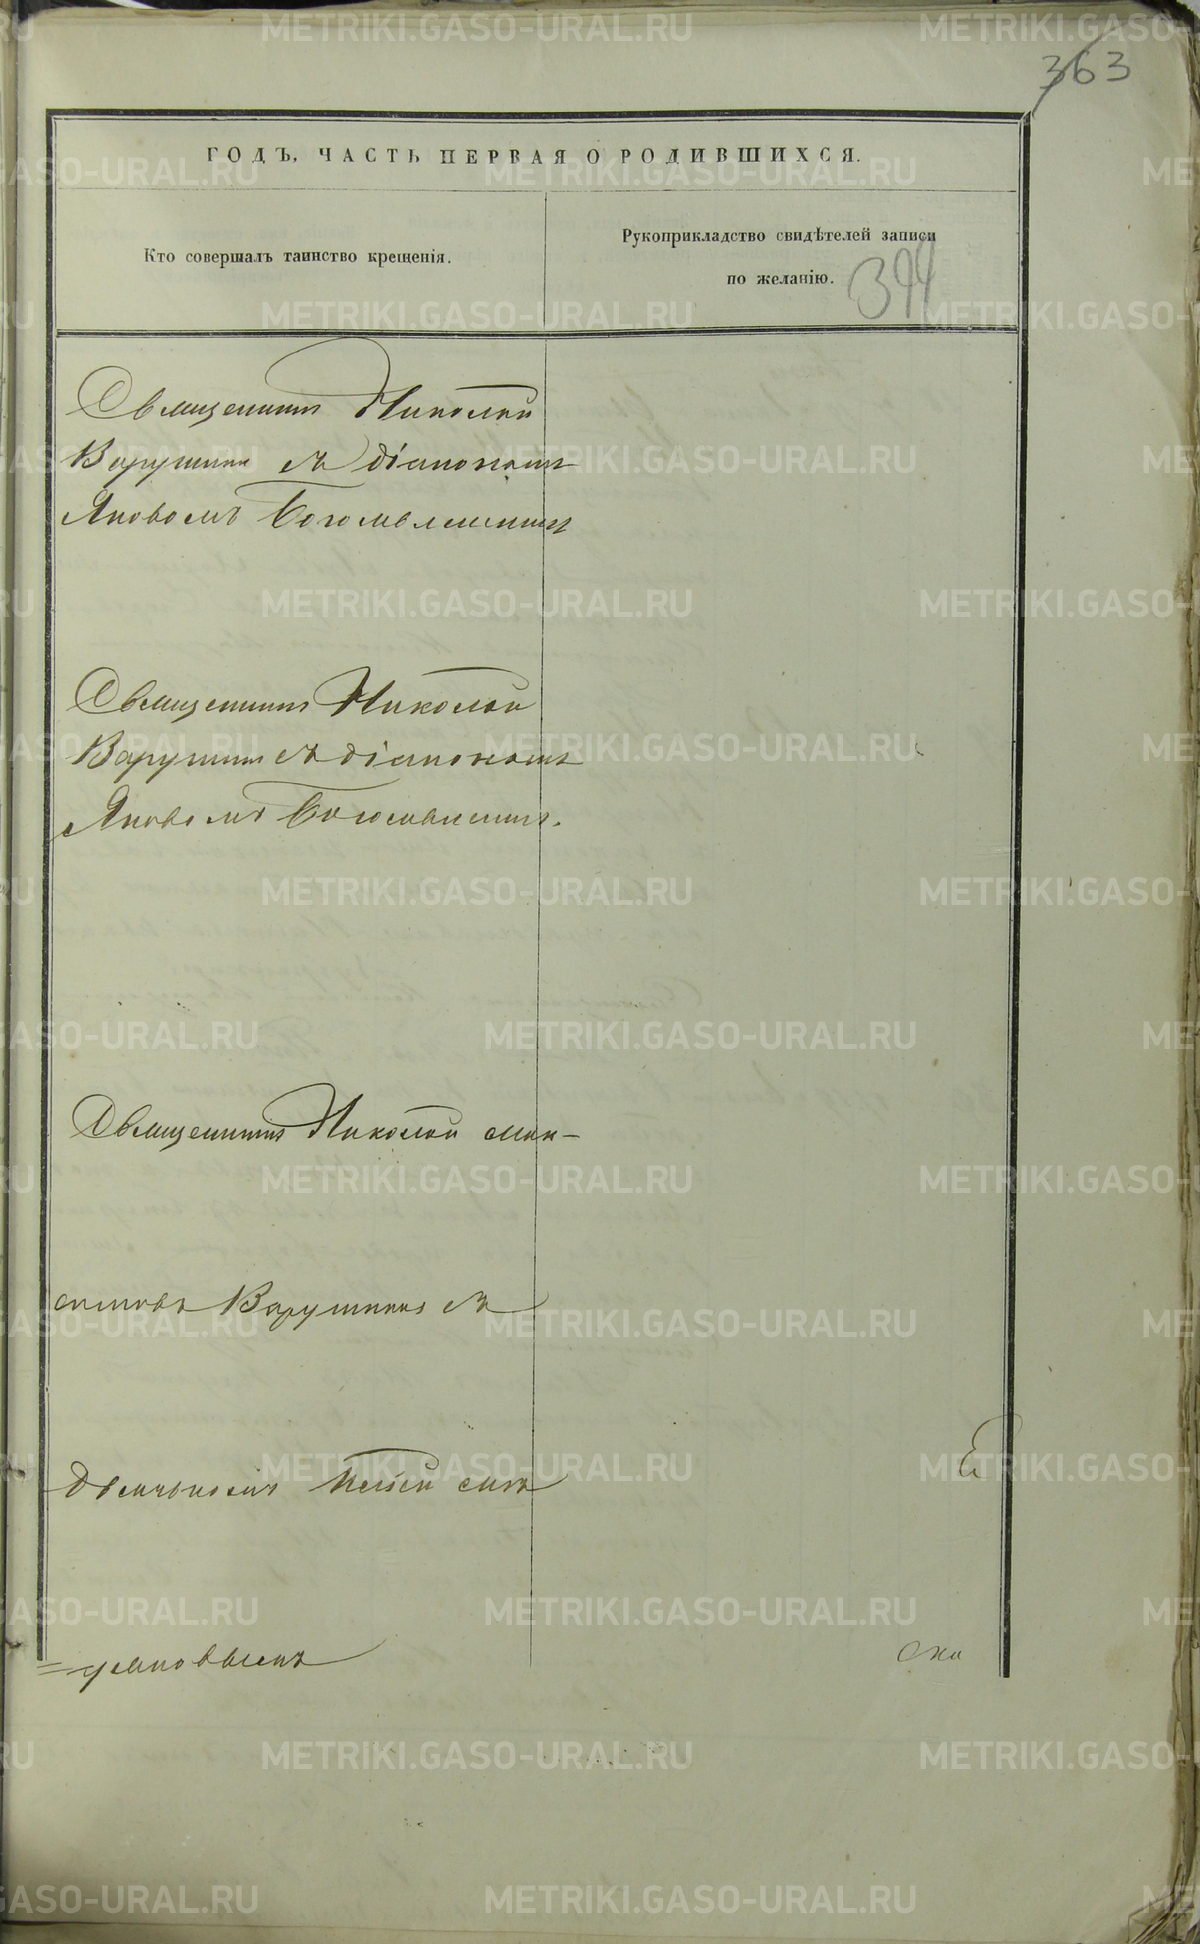 363
ГОДЪ, ЧАСТЬ ПЕРВАЯ О РОДИВШИХСЯ.
Кто совершалъ таинство крещенія.
Рукоприкладство свидѣтелей записи
по желанію.
394
Священникъ Николай
Варушкинъ съ діакономъ
Яковомъ Богоявленскимъ
Священникъ Николай
Варушкинъ съ діакономъ
Яковомъ Богоявленскимъ.
Священникъ Николай
Варушкинъ съ
METRIKI.GASO-URAL.RU